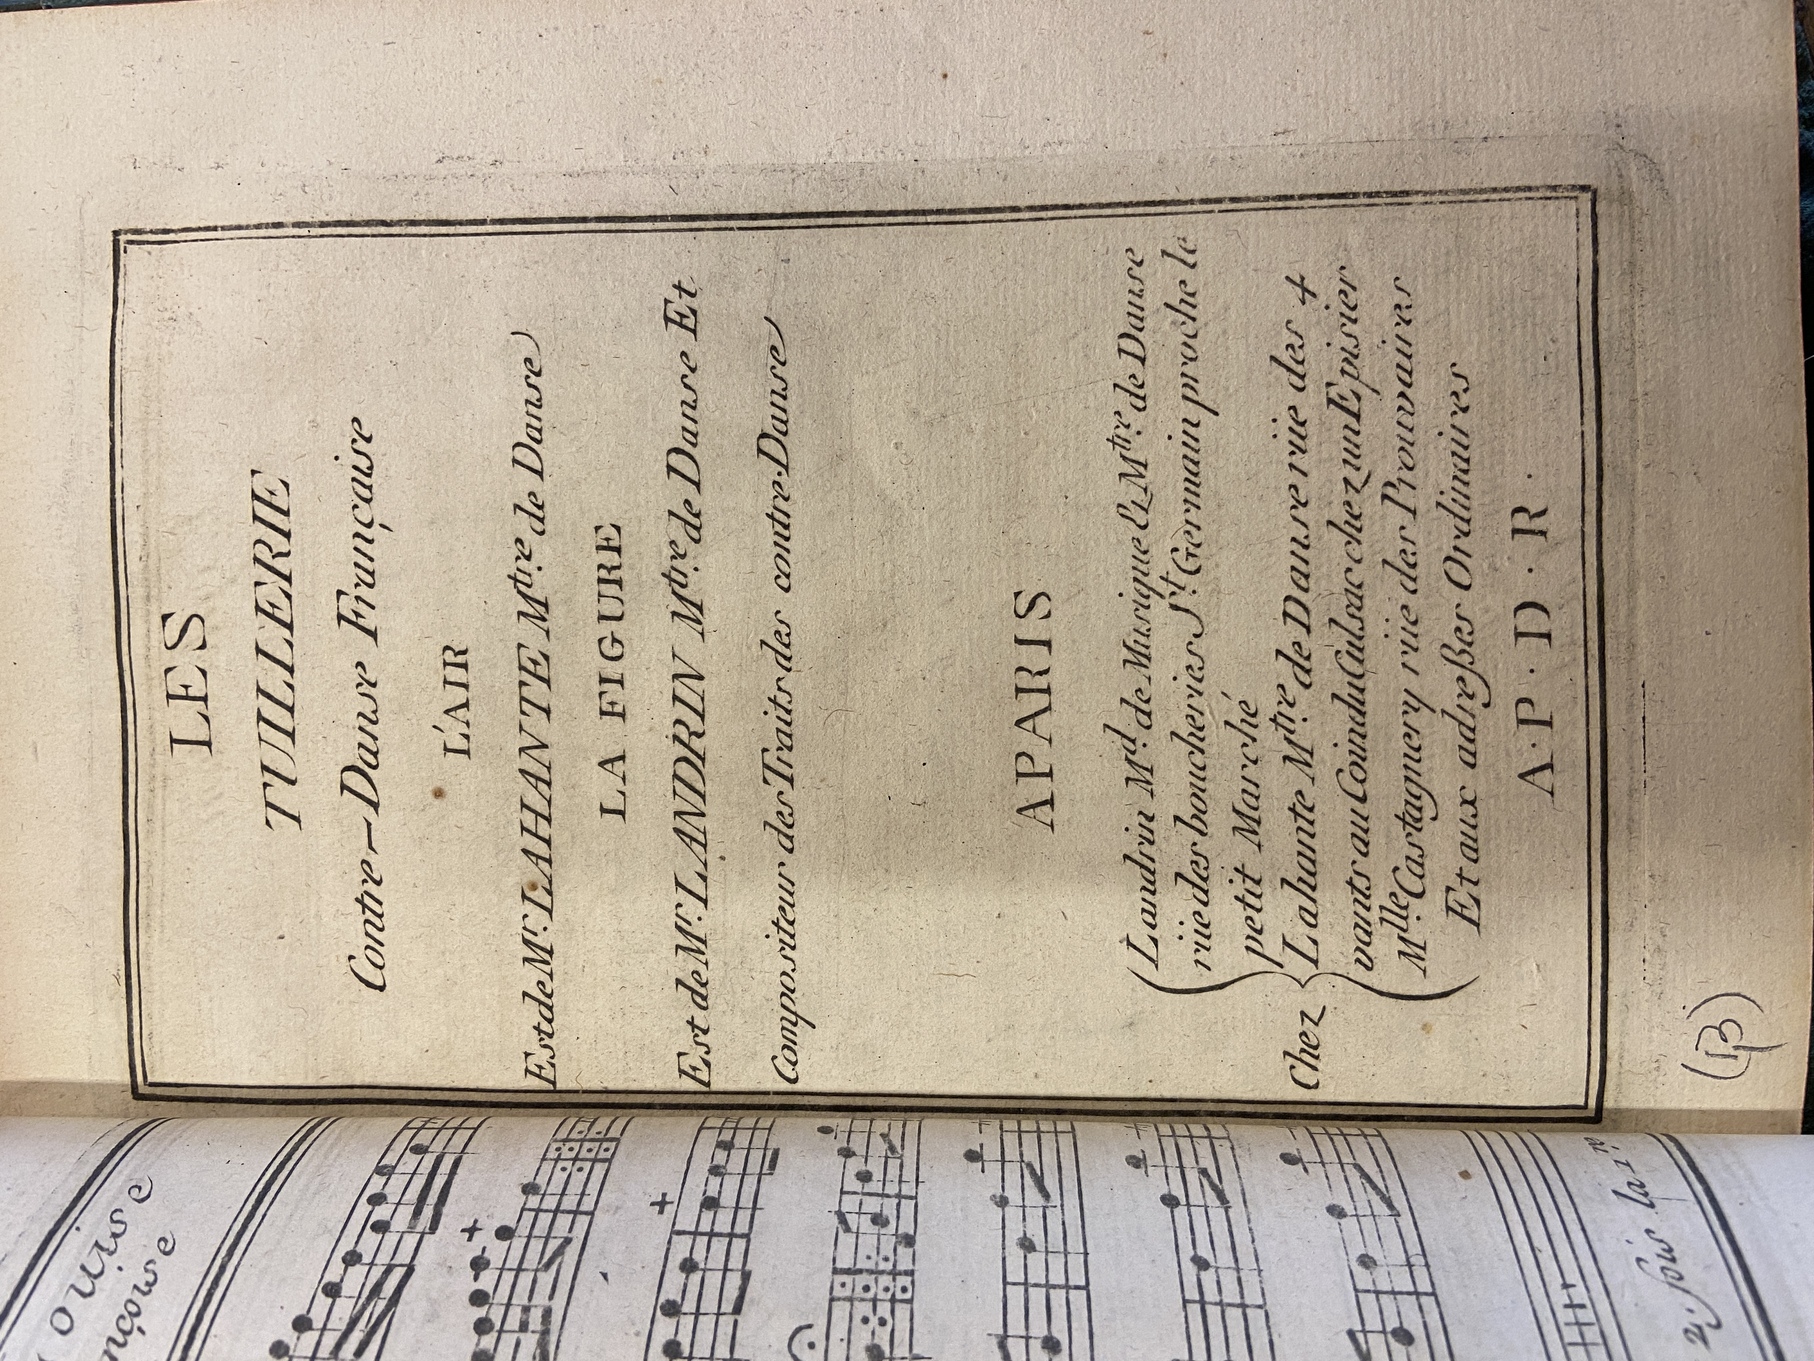 LES
TUILLERIE
Contre-Danse Française
L'AIR
Est de Mr. LAHANTE Mtre. de Danse
LA FIGURE
Est de Mr. LANDRIN Mtre. de Danse Et
Compositeur des Traits des contre-Danse
APARIS
Chez
Landrin Md. de Musique & Mtre. de Danse
rüe des boucheries St. Germain proche le
petit Marché
Lahante Mtre. de Danse rüe des 4
vants au Coin du Culsac chez un Episier
Mlle. Castagnery rüe des Prouvaires
Et aux adreßes Ordinaires
A·P·D·R·
(13)
ouise
nçoise
2. fois la 1re